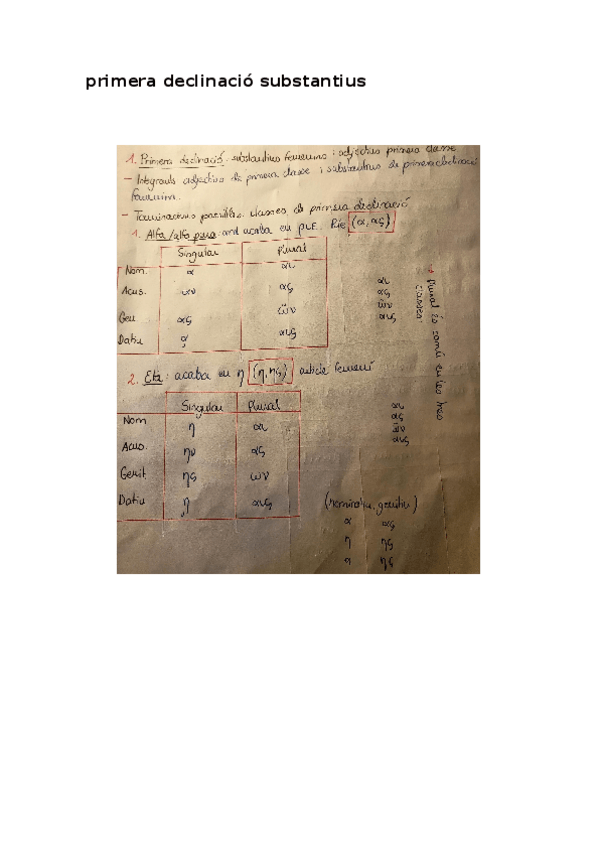 primera declinació substantius
1. Primera declinació: substantius femenins i adjectius primera classe
– Integrants adjectius de primera classe i substantius de primera declinació
femenins.
– Terminacions possibles classes de primera declinació
1. Alfa/alfa pura: and acaba en ρ, ι, ε. (α, ας)
Singular Plural
Nom. α αι
Acus. αν ας
Gen. ας ῶν
Datiu ᾳ αις
αι
ας
ῶν
αις
→ Plural és comú en les tres
classes
2. Eta: acaba en η (η, ης) article femení
Singular Plural
Nom η αι
Acus. ην ας
Genit. ης ων
Datiu ῃ αις
αι
ας
ων
αις
(nominatiu, genitiu)
α ας
η ης
η ης